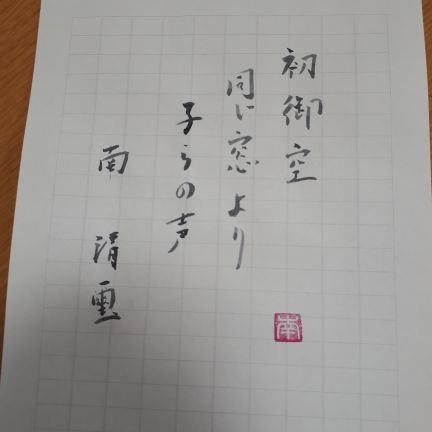 初御空
同じ窓より
子らの声
南 清璽
南